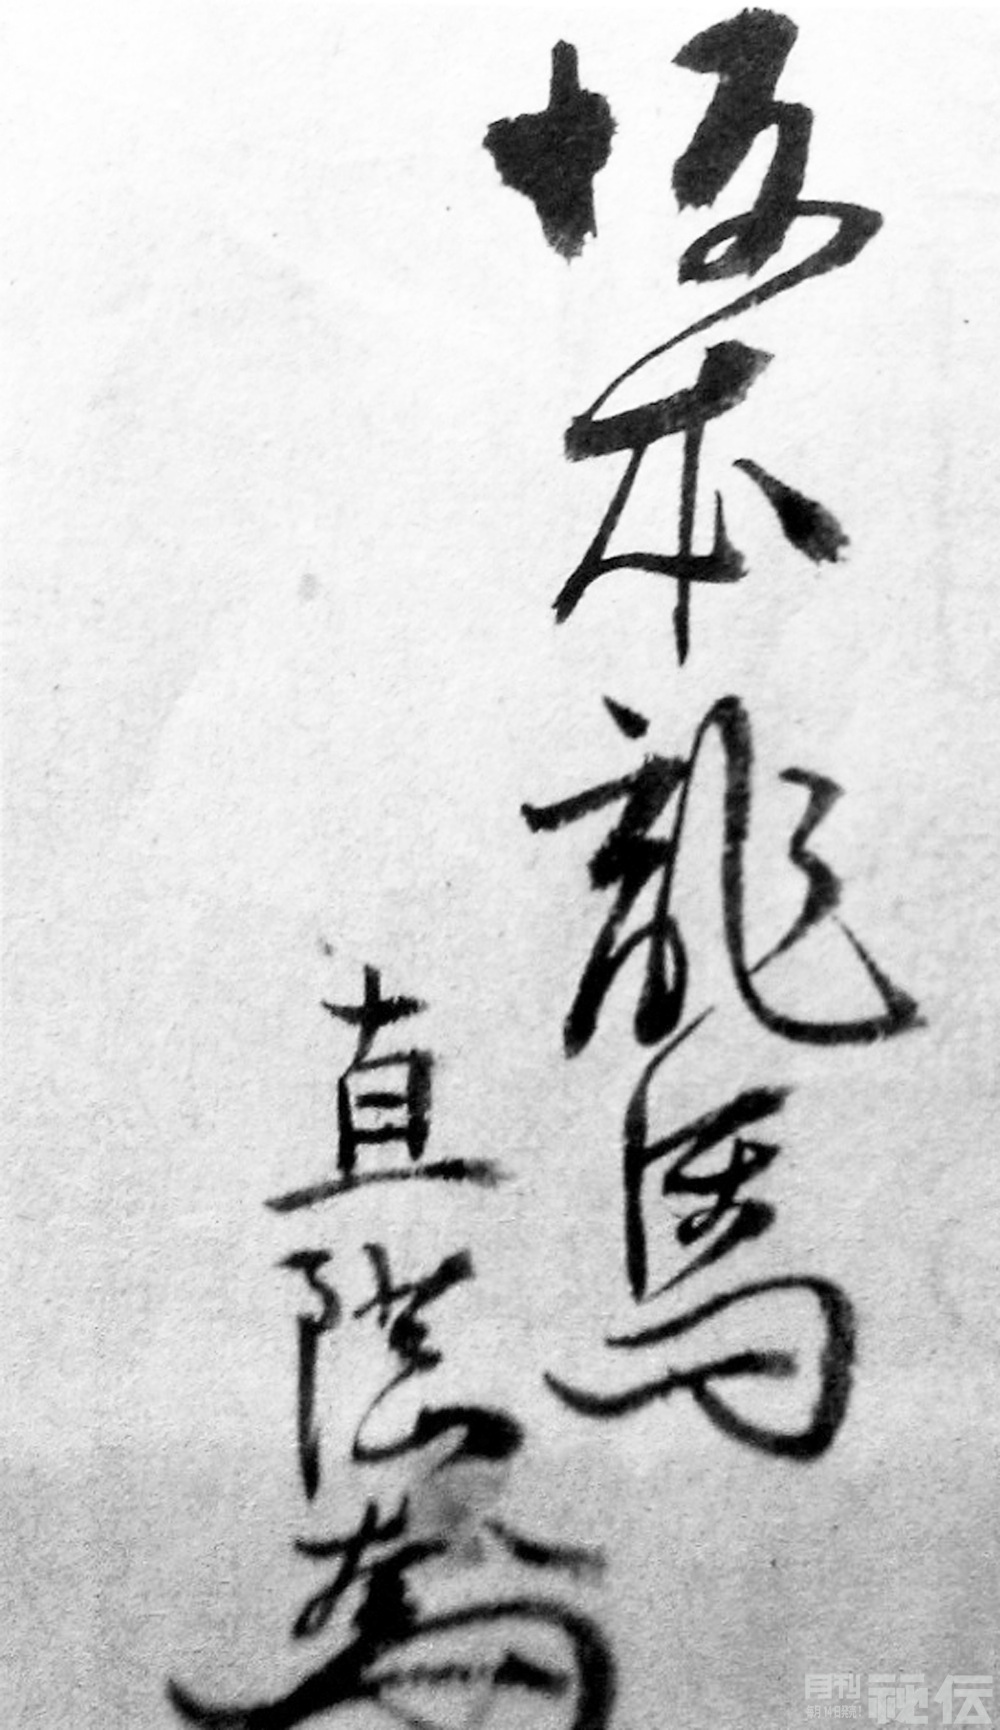 坂本龍馬
直陰
月刊
秘伝